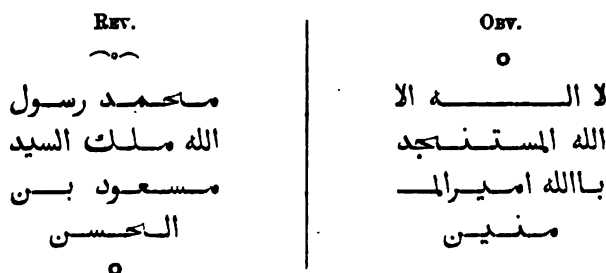 Rev.
محمد رسول
الله ملك السيد
مسعود بن
الحسن
Obv.
لا اله الا
الله المستنجد
باالله اميرالمـ
منين